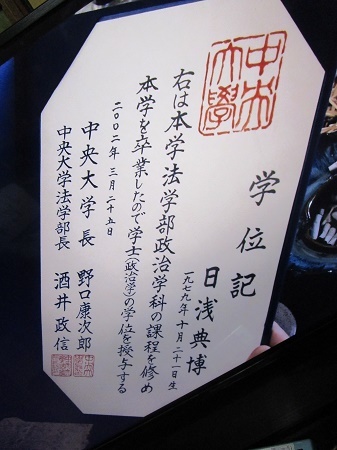 中央
大學
学位記
日浅典博
一九七九年十月二十一日生
右は本学法学部政治学科の課程を修め
本学を卒業したので学士(政治学)の学位を授与する
二〇〇二年三月二十五日
中央大学長 野口康次郎
中央大学法学部長 酒井政信